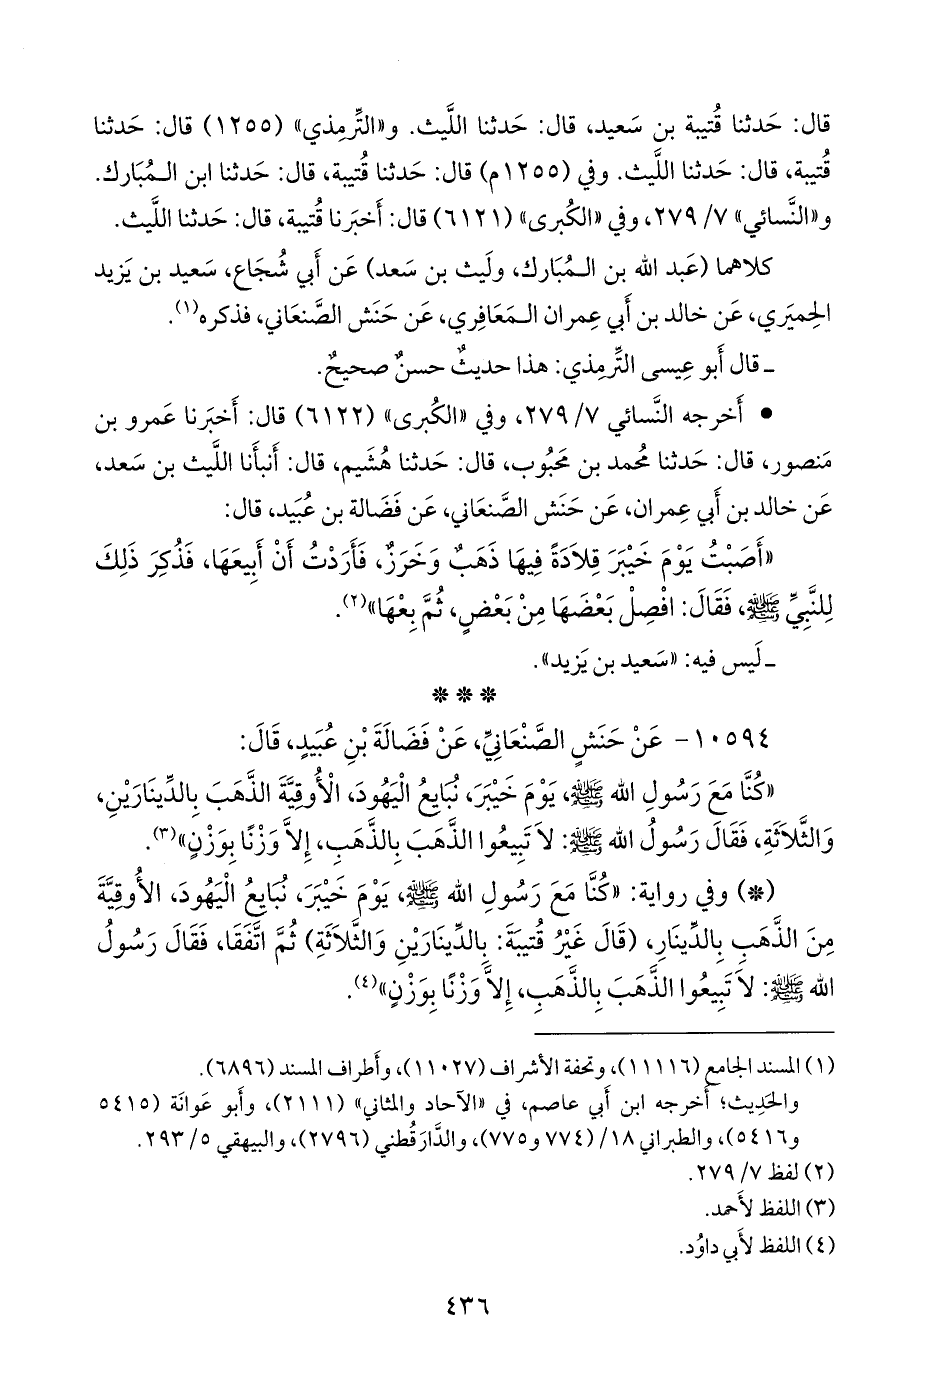 قال: حَدثنا قُتيبة بن سَعيد، قال: حَدثنا اللَّيث. و«التِّرمِذي» (١٢٥٥) قال: حَدثنا
قُتيبة، قال: حَدثنا اللَّيث. وفي (١٢٥٥م) قال: حَدثنا قُتيبة، قال: حَدثنا ابن الـمُبَارك.
و«النَّسائي» ٧/ ٢٧٩، وفي «الكُبرى» (٦١٢١) قال: أَخبَرنا قُتيبة، قال: حَدثنا اللَّيث.
كلاهما (عَبد الله بن الـمُبَارك، ولَيث بن سَعد) عَن أَبي شُجَاع، سَعيد بن يَزيد
الحِميَري، عَن خالد بن أَبي عِمران الـمَعَافِري، عَن حَنَش الصَّنعَاني، فذكره(١).
ـ قال أَبو عِيسى التِّرمِذي: هذا حديثٌ حسنٌ صحيحٌ.
• أَخرجه النَّسائي ٧/ ٢٧٩، وفي «الكُبرى» (٦١٢٢) قال: أَخبَرنا عَمرو بن
مَنصور، قال: حَدثنا مُحمد بن مَحبُوب، قال: حَدثنا هُشَيم، قال: أَنبأَنا اللَّيث بن سَعد،
عَن خالد بن أَبي عِمران، عَن حَنَش الصَّنعَاني، عَن فَضَالة بن عُبَيد، قال:
«أَصَبْتُ يَوْمَ خَيْبَرَ قِلَادَةً فِيهَا ذَهَبٌ وَخَرَزٌ، فَأَرَدْتُ أَنْ أَبِيعَهَا، فَذُكِرَ ذَلِكَ
لِلنَّبِيِّ ﷺ، فَقَالَ: افْصِلْ بَعْضَهَا مِنْ بَعْضٍ، ثُمَّ بِعْهَا»(٢).
ـ لَيس فيه: «سَعيد بن يَزيد».
* * *
١٠٥٩٤- عَنْ حَنَشٍ الصَّنْعَانِيِّ، عَنْ فَضَالَةَ بْنِ عُبَيدٍ، قَالَ:
«كُنَّا مَعَ رَسُولِ الله ﷺ، يَوْمَ خَيْبَرَ، نُبَايِعُ الْيَهُودَ، الْأُوقِيَّةَ الذَّهَبَ بِالدِّينَارَيْنِ،
وَالثَّلَاثَةِ، فَقَالَ رَسُولُ الله ﷺ: لاَ تَبِيعُوا الذَّهَبَ بِالذَّهَبِ، إِلاَّ وَزْنًا بِوَزْنٍ»(٣).
(*) وفي رواية: «كُنَّا مَعَ رَسُولِ الله ﷺ، يَوْمَ خَيْبَرَ، نُبَايِعُ الْيَهُودَ، الأُوقِيَّةَ
مِنَ الذَّهَبِ بِالدِّينَارِ، (قَالَ غَيْرُ قُتيبَةَ: بِالدِّينَارَيْنِ وَالثَّلَاثَةِ) ثُمَّ اتَّفَقَا، فَقَالَ رَسُولُ
الله ﷺ: لاَ تَبِيعُوا الذَّهَبَ بِالذَّهَبِ، إِلاَّ وَزْنًا بِوَزْنٍ»(٤).
(١) المسند الجامع (١١١١٦)، وتحفة الأشراف (١١٠٢٧)، وأَطراف المسند (٦٨٩٦).
والحَدِيث؛ أَخرجه ابن أَبي عاصم، في «الآحاد والمثاني» (٢١١١)، وأَبو عَوانَة (٥٤١٥
و٥٤١٦)، والطبراني ١٨/ (٧٧٤ و٧٧٥)، والدَّارَقُطني (٢٧٩٦)، والبيهقي ٥/ ٢٩٣.
(٢) لفظ ٧/ ٢٧٩.
(٣) اللفظ لأَحمد.
(٤) اللفظ لأَبي داوُد.
٤٣٦